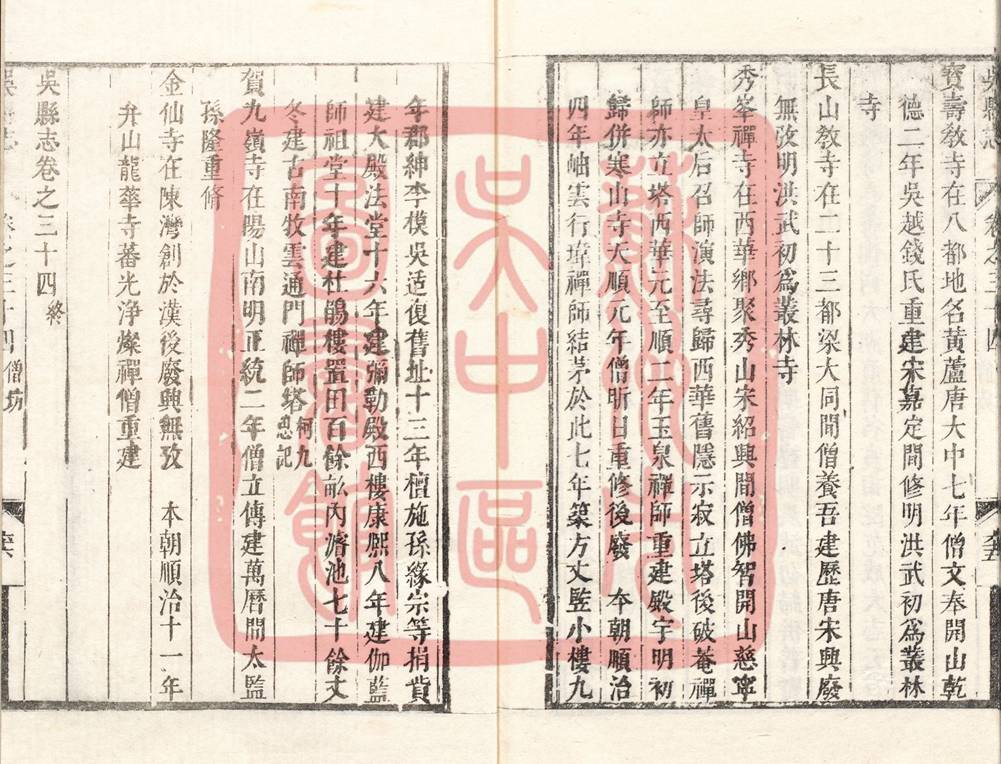 吳縣志 卷之三十四
寶壽教寺在八都地名黃蘆唐大中七年僧文奉開山乾
德二年吳越錢氏重建宋嘉定間修明洪武初爲叢林
寺
長山教寺在二十三都梁大同間僧養吾建歷唐宋興廢
無攷明洪武初爲叢林寺
秀峯禪寺在西華鄉聚秀山宋紹興間僧佛智開山慈寧
皇太后召師演法尋歸西華舊隱示寂立塔後破菴禪
師亦立塔西華元至順二年玉泉禪師重建殿宇明初
歸併寒山寺天順元年僧昕日重修後廢 本朝順治
四年岫雲行瑋禪師結茅於此七年築方丈監小樓九
年郡紳李模吳适復舊址十三年檀施孫緣宗等捐貲
建大殿法堂十六年建彌勒殿西樓康熙八年建伽藍
師祖堂十年建杜鵑樓置田百餘畝內濬池七十餘丈
冬建古南牧雲通門禪師塔柯九思記
賀九嶺寺在陽山南明正統二年僧立傳建萬曆間太監
孫隆重修
金仙寺在陳灣創於漢後廢興無攷 本朝順治十一年
弁山龍華寺蕃光淨燦禪僧重建
吳縣志卷之三十四終
吳縣志 卷之三十四 僧坊
蘇州市
吳中區
圖書館